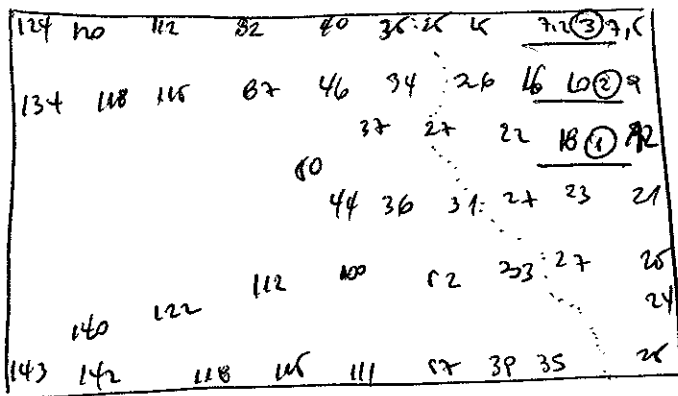 124 110 112 82 40 36 15 7,2 3 7,5
134 118 115 87 46 34 26 16 10 2 9
37 27 22 18 1 12
44 36 31 27 23 21
112 100 52 33 27 25
140 122 24
143 142 118 115 111 57 39 35 26